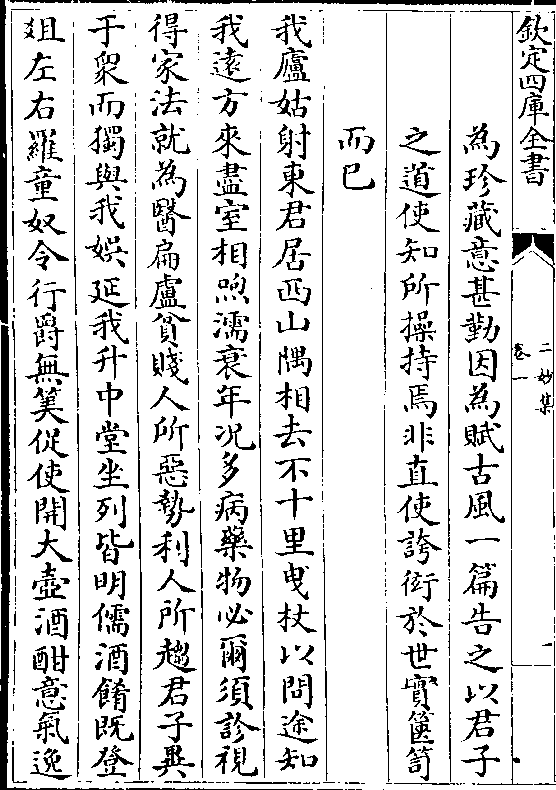 欽定四庫全書
二妙集
卷一
為珍藏意甚勤因為賦古風一篇告之以君子
之道使知所操持焉非直使誇衒於世實篋笥
而已
我廬姑射東君居西山隅相去不十里曳杖以問途知
我遠方來盡室相煦濡衰年况多病藥物必爾須診視
得家法就為醫扁盧貧賤人所惡勢利人所趨君子異
于衆而獨與我娯延我升中堂坐列皆明儒酒餚既登
俎左右羅童奴令行爵無筭促使開大壺酒酣意氣逸